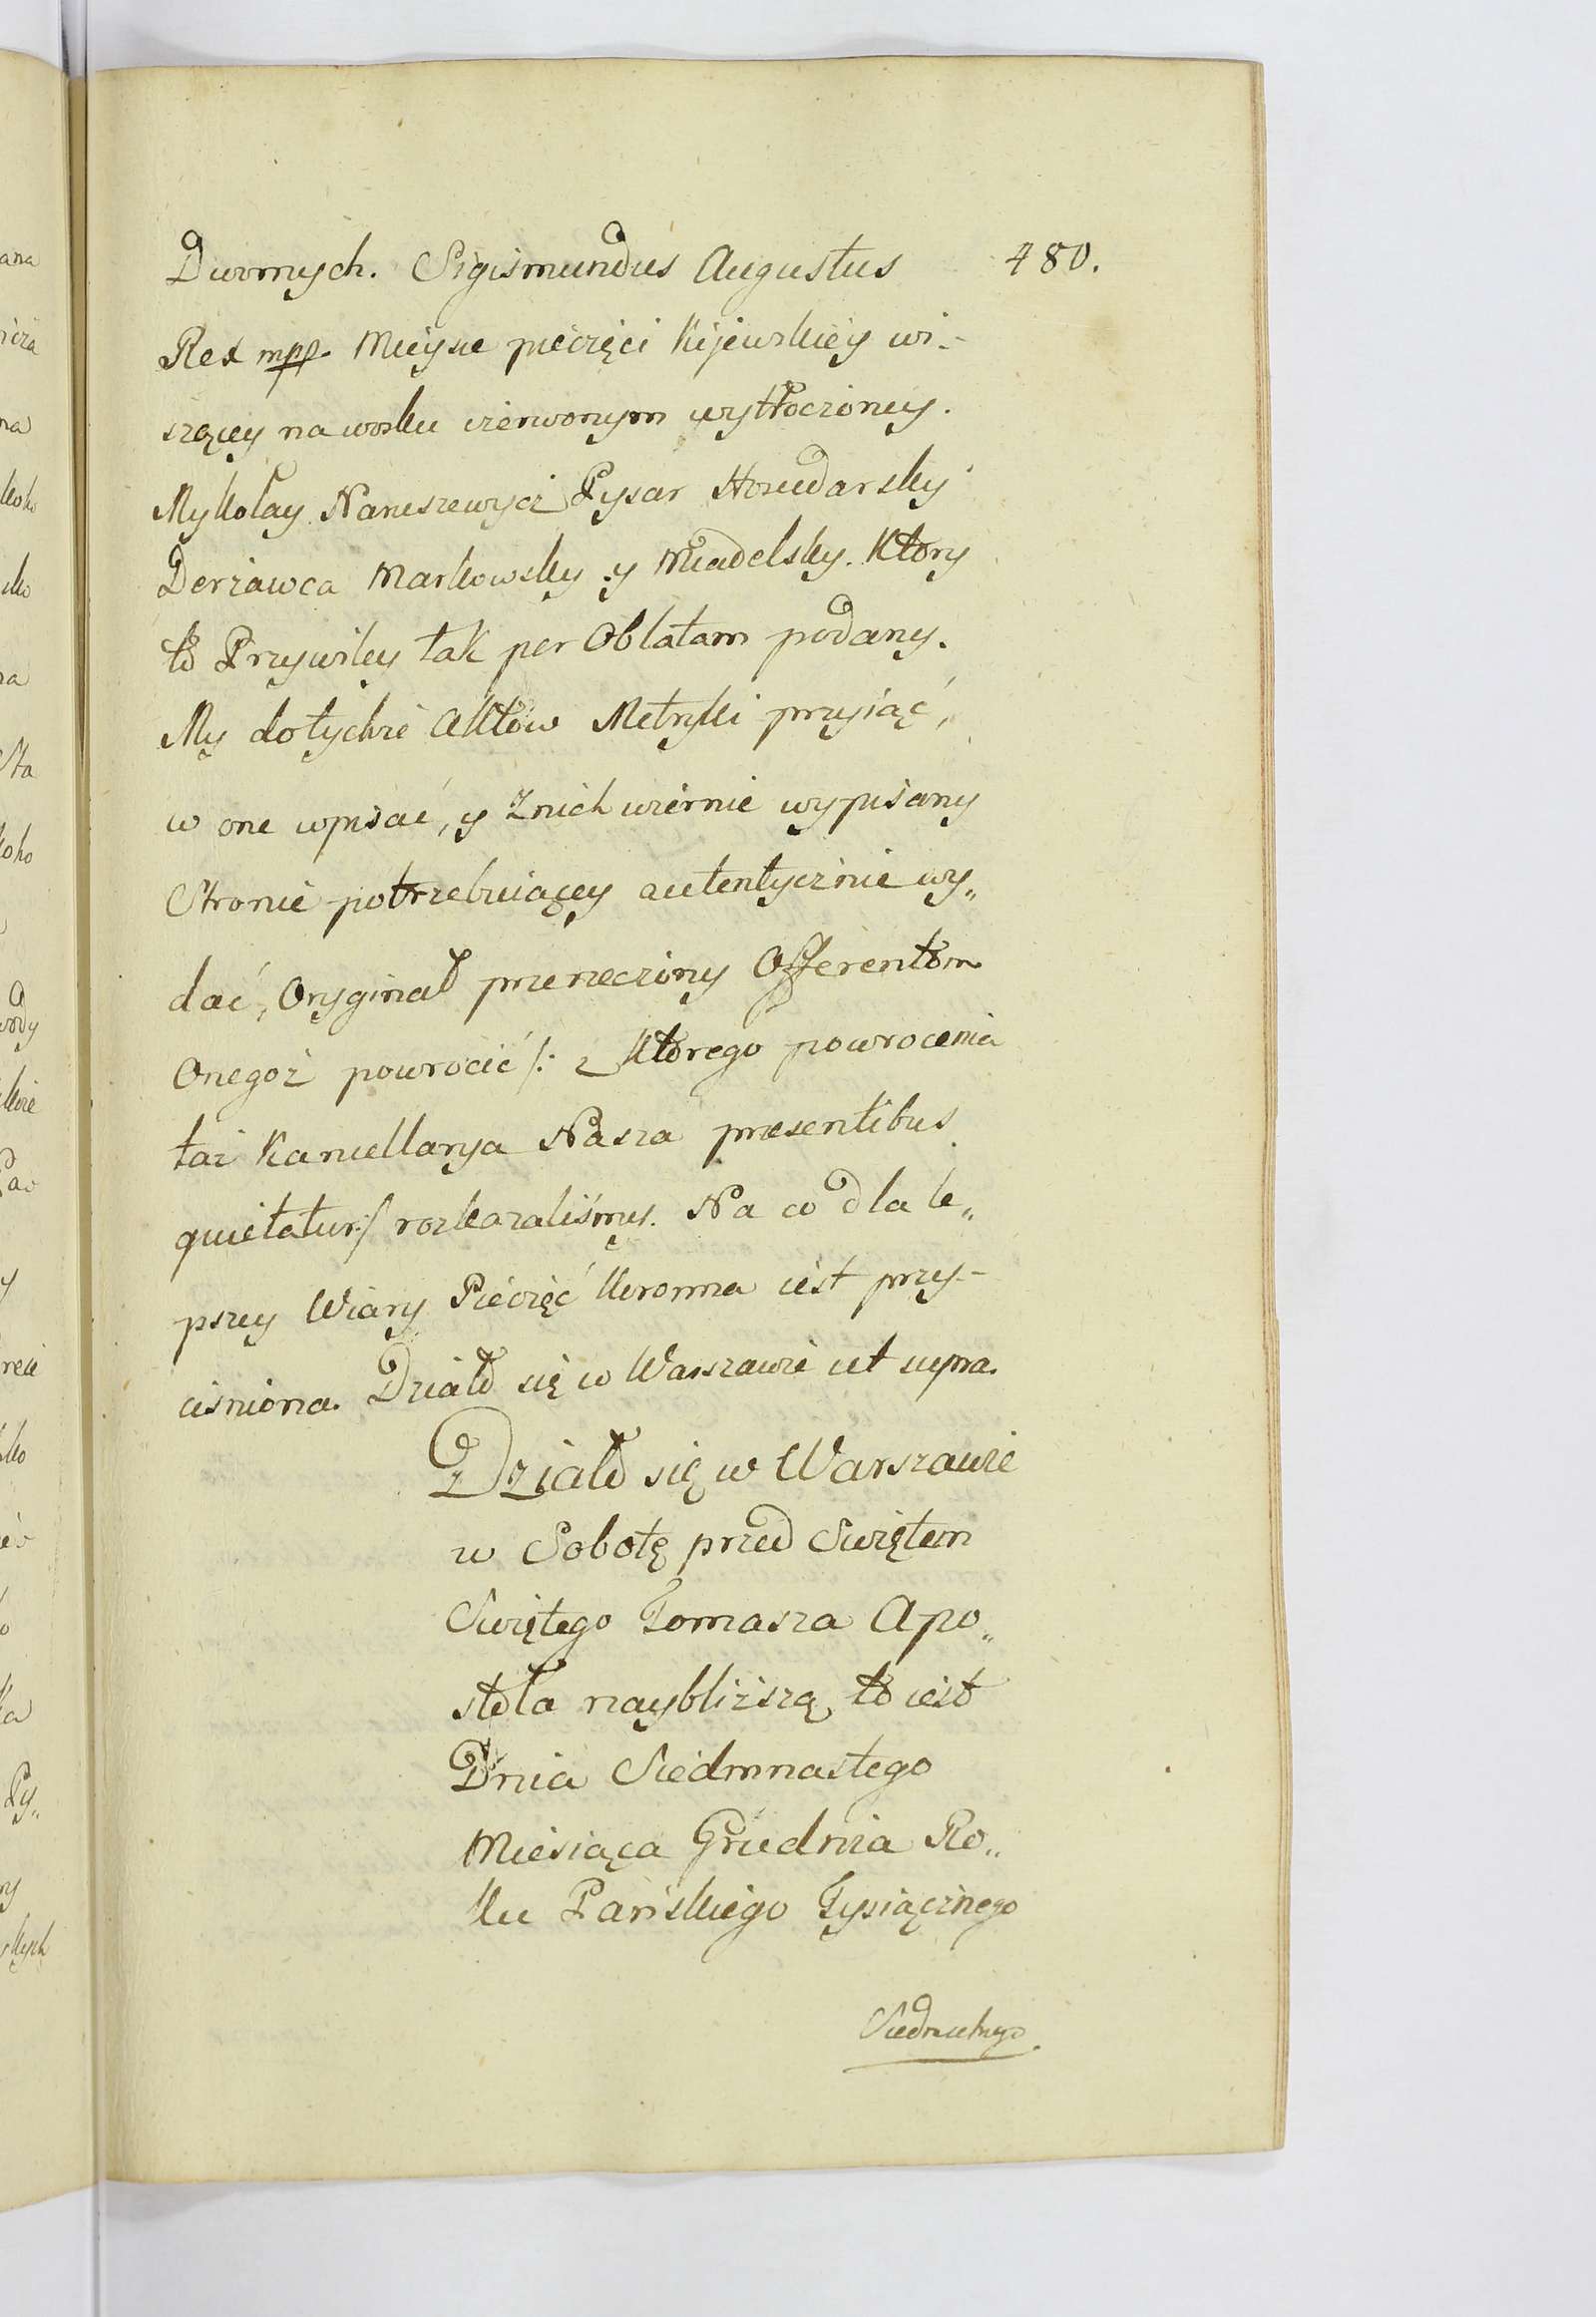 Dwornych. Sigismundus Augustus 480.
Rex mpp. Mieysce pieczęci Kijewskiey wi-
szącey na wosku czerwonym wytłoczoney.
Mykołay Naruszewycz Pysar Hosudarsky
Derżawca Markowsky y Miadelsky. Ktory
to Przywiley tak per Oblatam podany.
My do tychże Aktow Metryki przyiąć,
w one wpisać, y z nich wiernie wypisany
Stronie potrzebuiącey autentycznie wy„
dać, Oryginał przerzeczony Offerentom
Onegoż powrocić /: z Ktorego powrocenia
taż Kancellarya Nasza praesentibus
quietatur :/ rozkazaliśmy. Na co dla le„
pszey Wiary Pieczęć Koronna iest przy-
ciśniona. Działo się w Warszawie ut supra.
Działo się w Warszawie
w Sobotę przed Swiętem
Swiętego Tomasza Apo„
stoła naybliższą, to iest
Dnia Siedmnastego
Miesiąca Grudnia Ro„
ku Pańskiego Tysiącznego
Siedmsetnego